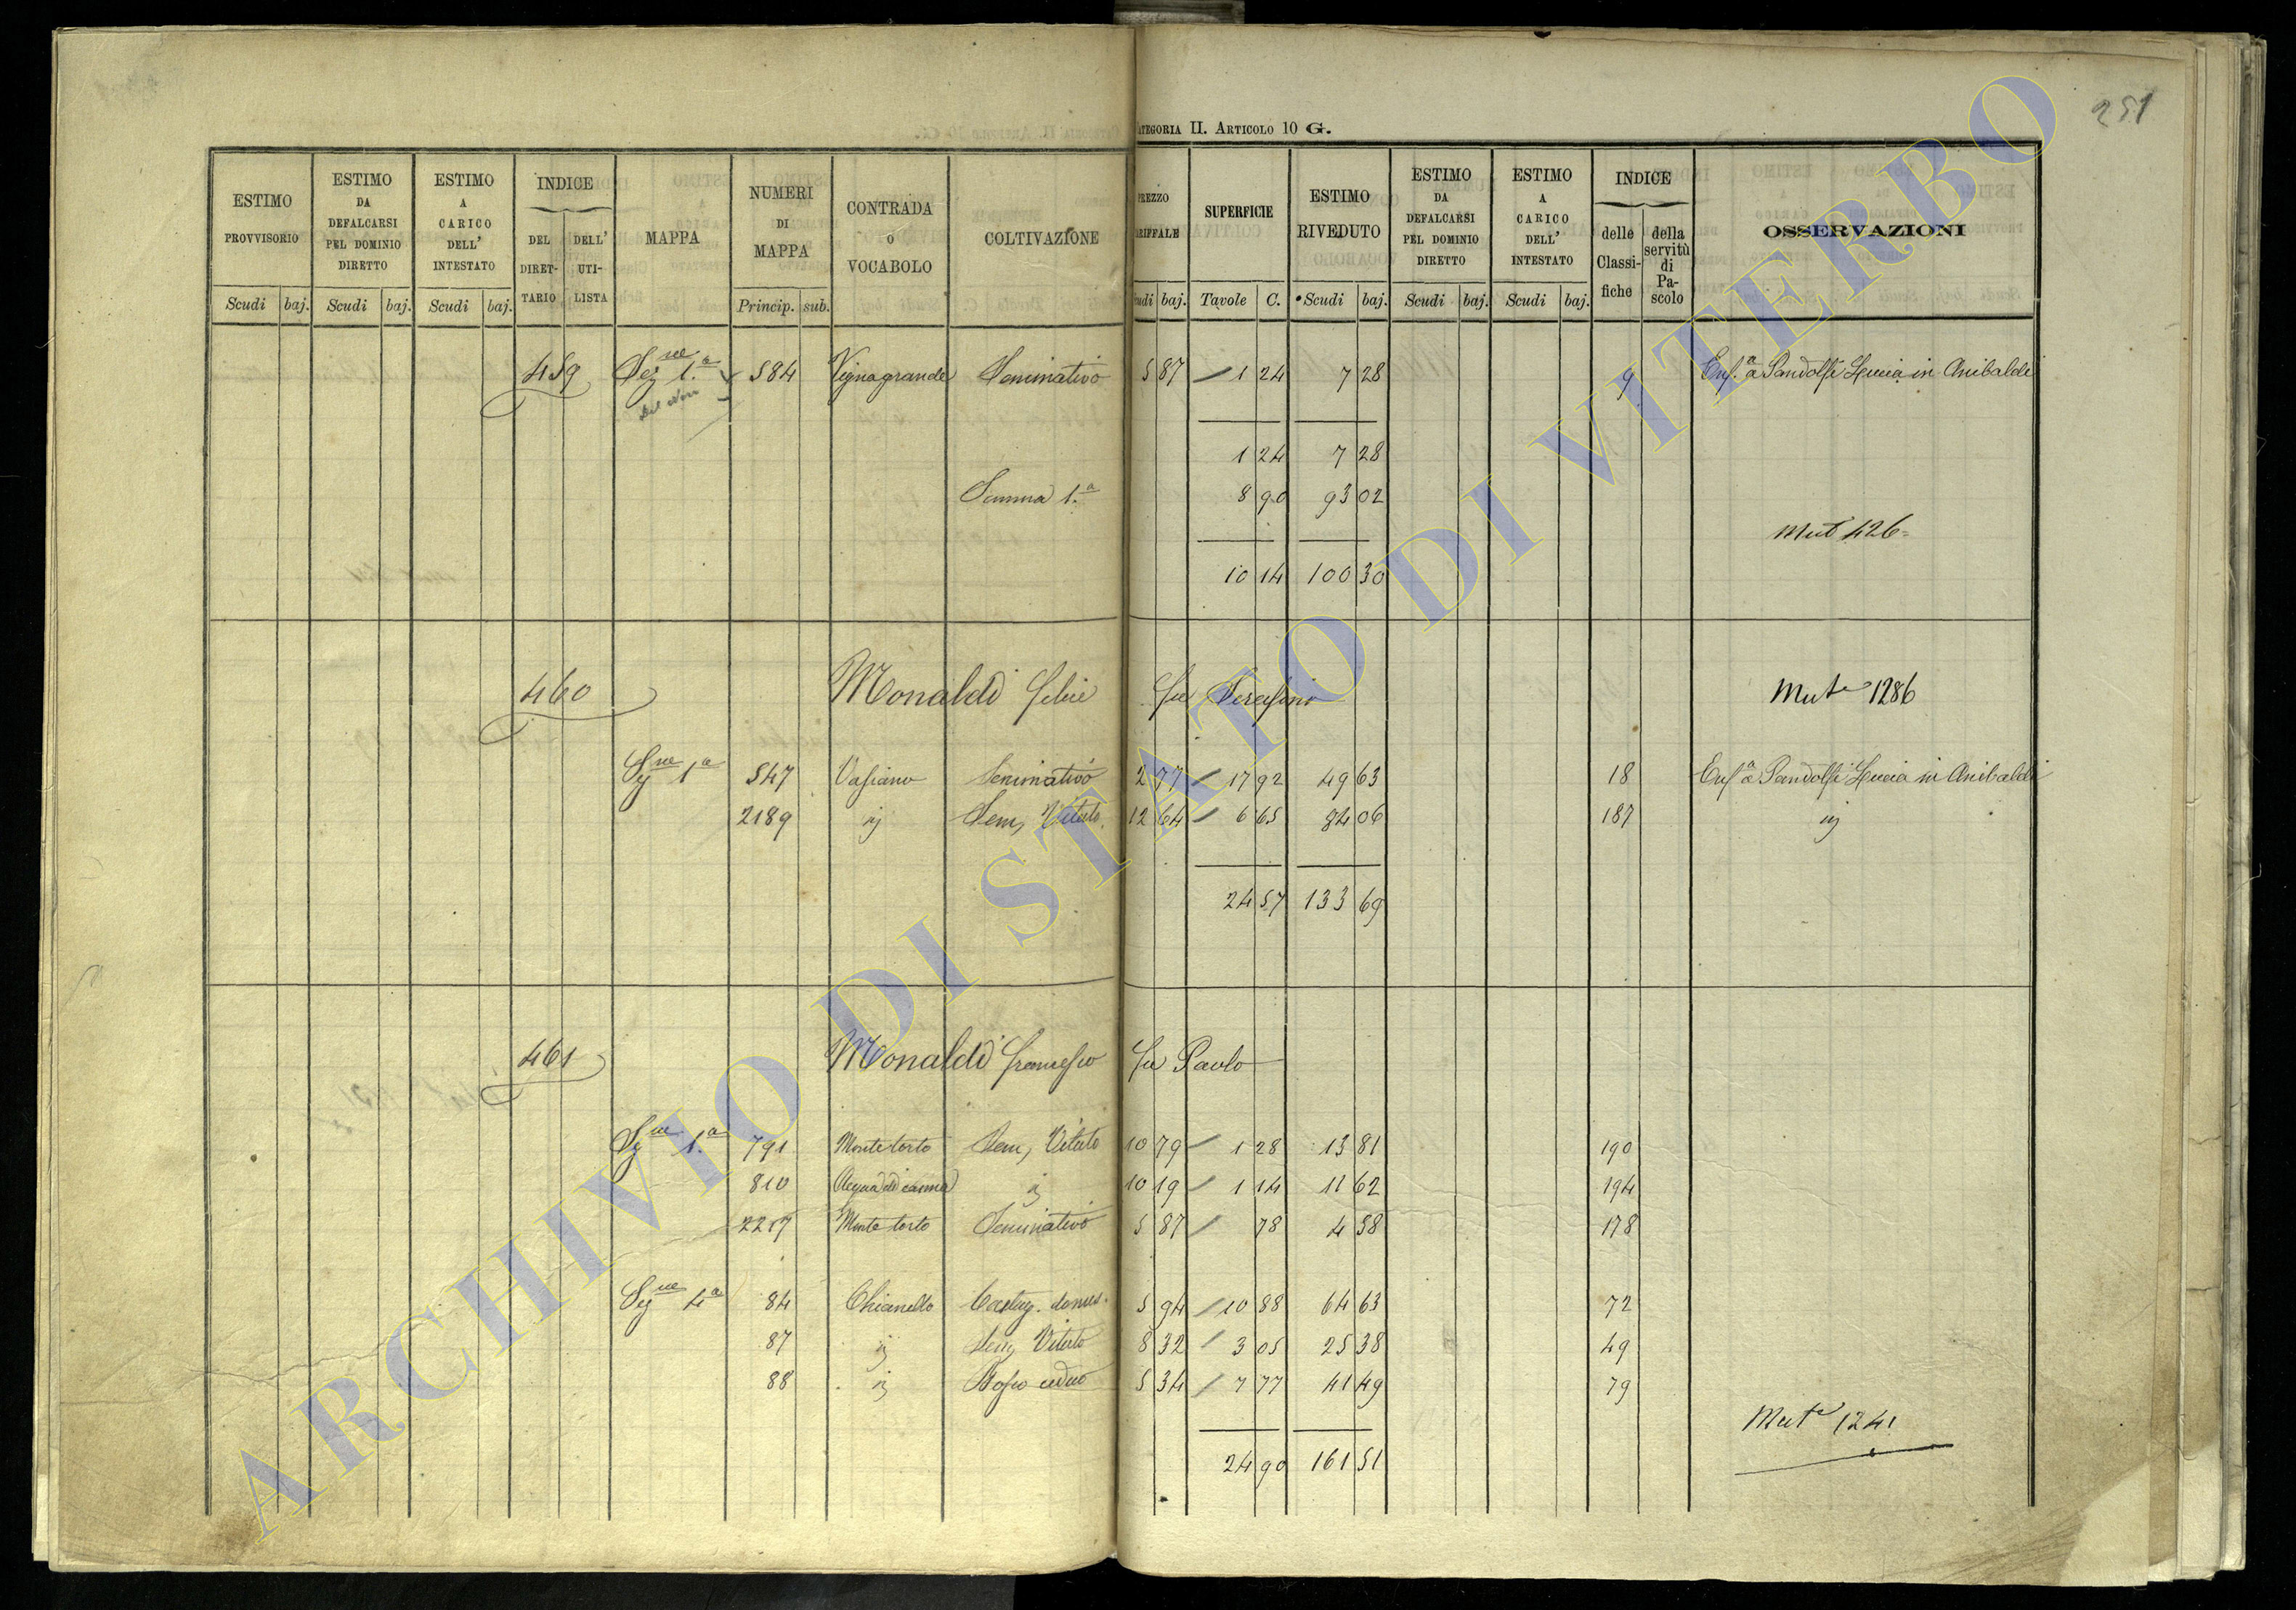 251
CATEGORIA II. ARTICOLO 10 G.
ESTIMO PROVVISORIO
ESTIMO DA DEFALCARSI PEL DOMINIO DIRETTO
ESTIMO A CARICO DELL' INTESTATO
INDICE
DEL DIRETTARIO
DELL' UTILISTA
MAPPA
NUMERI DI MAPPA
CONTRADA O VOCABOLO
COLTIVAZIONE
PREZZO TARIFFALE
SUPERFICIE
ESTIMO RIVEDUTO
ESTIMO DA DEFALCARSI PEL DOMINIO DIRETTO
ESTIMO A CARICO DELL' INTESTATO
INDICE
delle Classifiche
della servitù di Pascolo
OSSERVAZIONI
Scudi baj. Scudi baj. Scudi baj. Princip. sub. Scudi baj. Tavole C. Scudi baj. Scudi baj. Scudi baj.
459 Sez.ne 1.a 584 Vignagrande Seminativo 5 87 1 24 7 28 9 Enf.a a Pandolfi Lucia in Anibaldi
1 24 7 28
Somma 1.a 8 90 93 02
Mut 426
10 14 100 30
460 Monaldi Felice fu Serafino Mut.e 1286
Sez.ne 1a 547 Vasiano Seminativo 2 77 17 92 49 63 18 Enf.a a Pandolfi Lucia in Anibaldi
2189 ij Sem, Vitato 12 64 6 65 84 06 187 ij
24 57 133 69
461 Monaldi Francesco fu Paolo
Sez.ne 1.a 791 Monte torto Sem, Vitato 10 79 1 28 13 81 190
810 Acqua di canna ij 10 19 1 14 11 62 194
2257 Monte torto Seminativo 5 87 78 4 58 178
Sez.ne 4a 84 Chianello Castag. domes. 5 94 10 88 64 63 72
87 ij Sem Vitato 8 32 3 05 25 38 49
88 ij Bosco ceduo 5 34 7 77 41 49 79
Mut.e 1241
24 90 161 51
ARCHIVIO DI STATO DI VITERBO